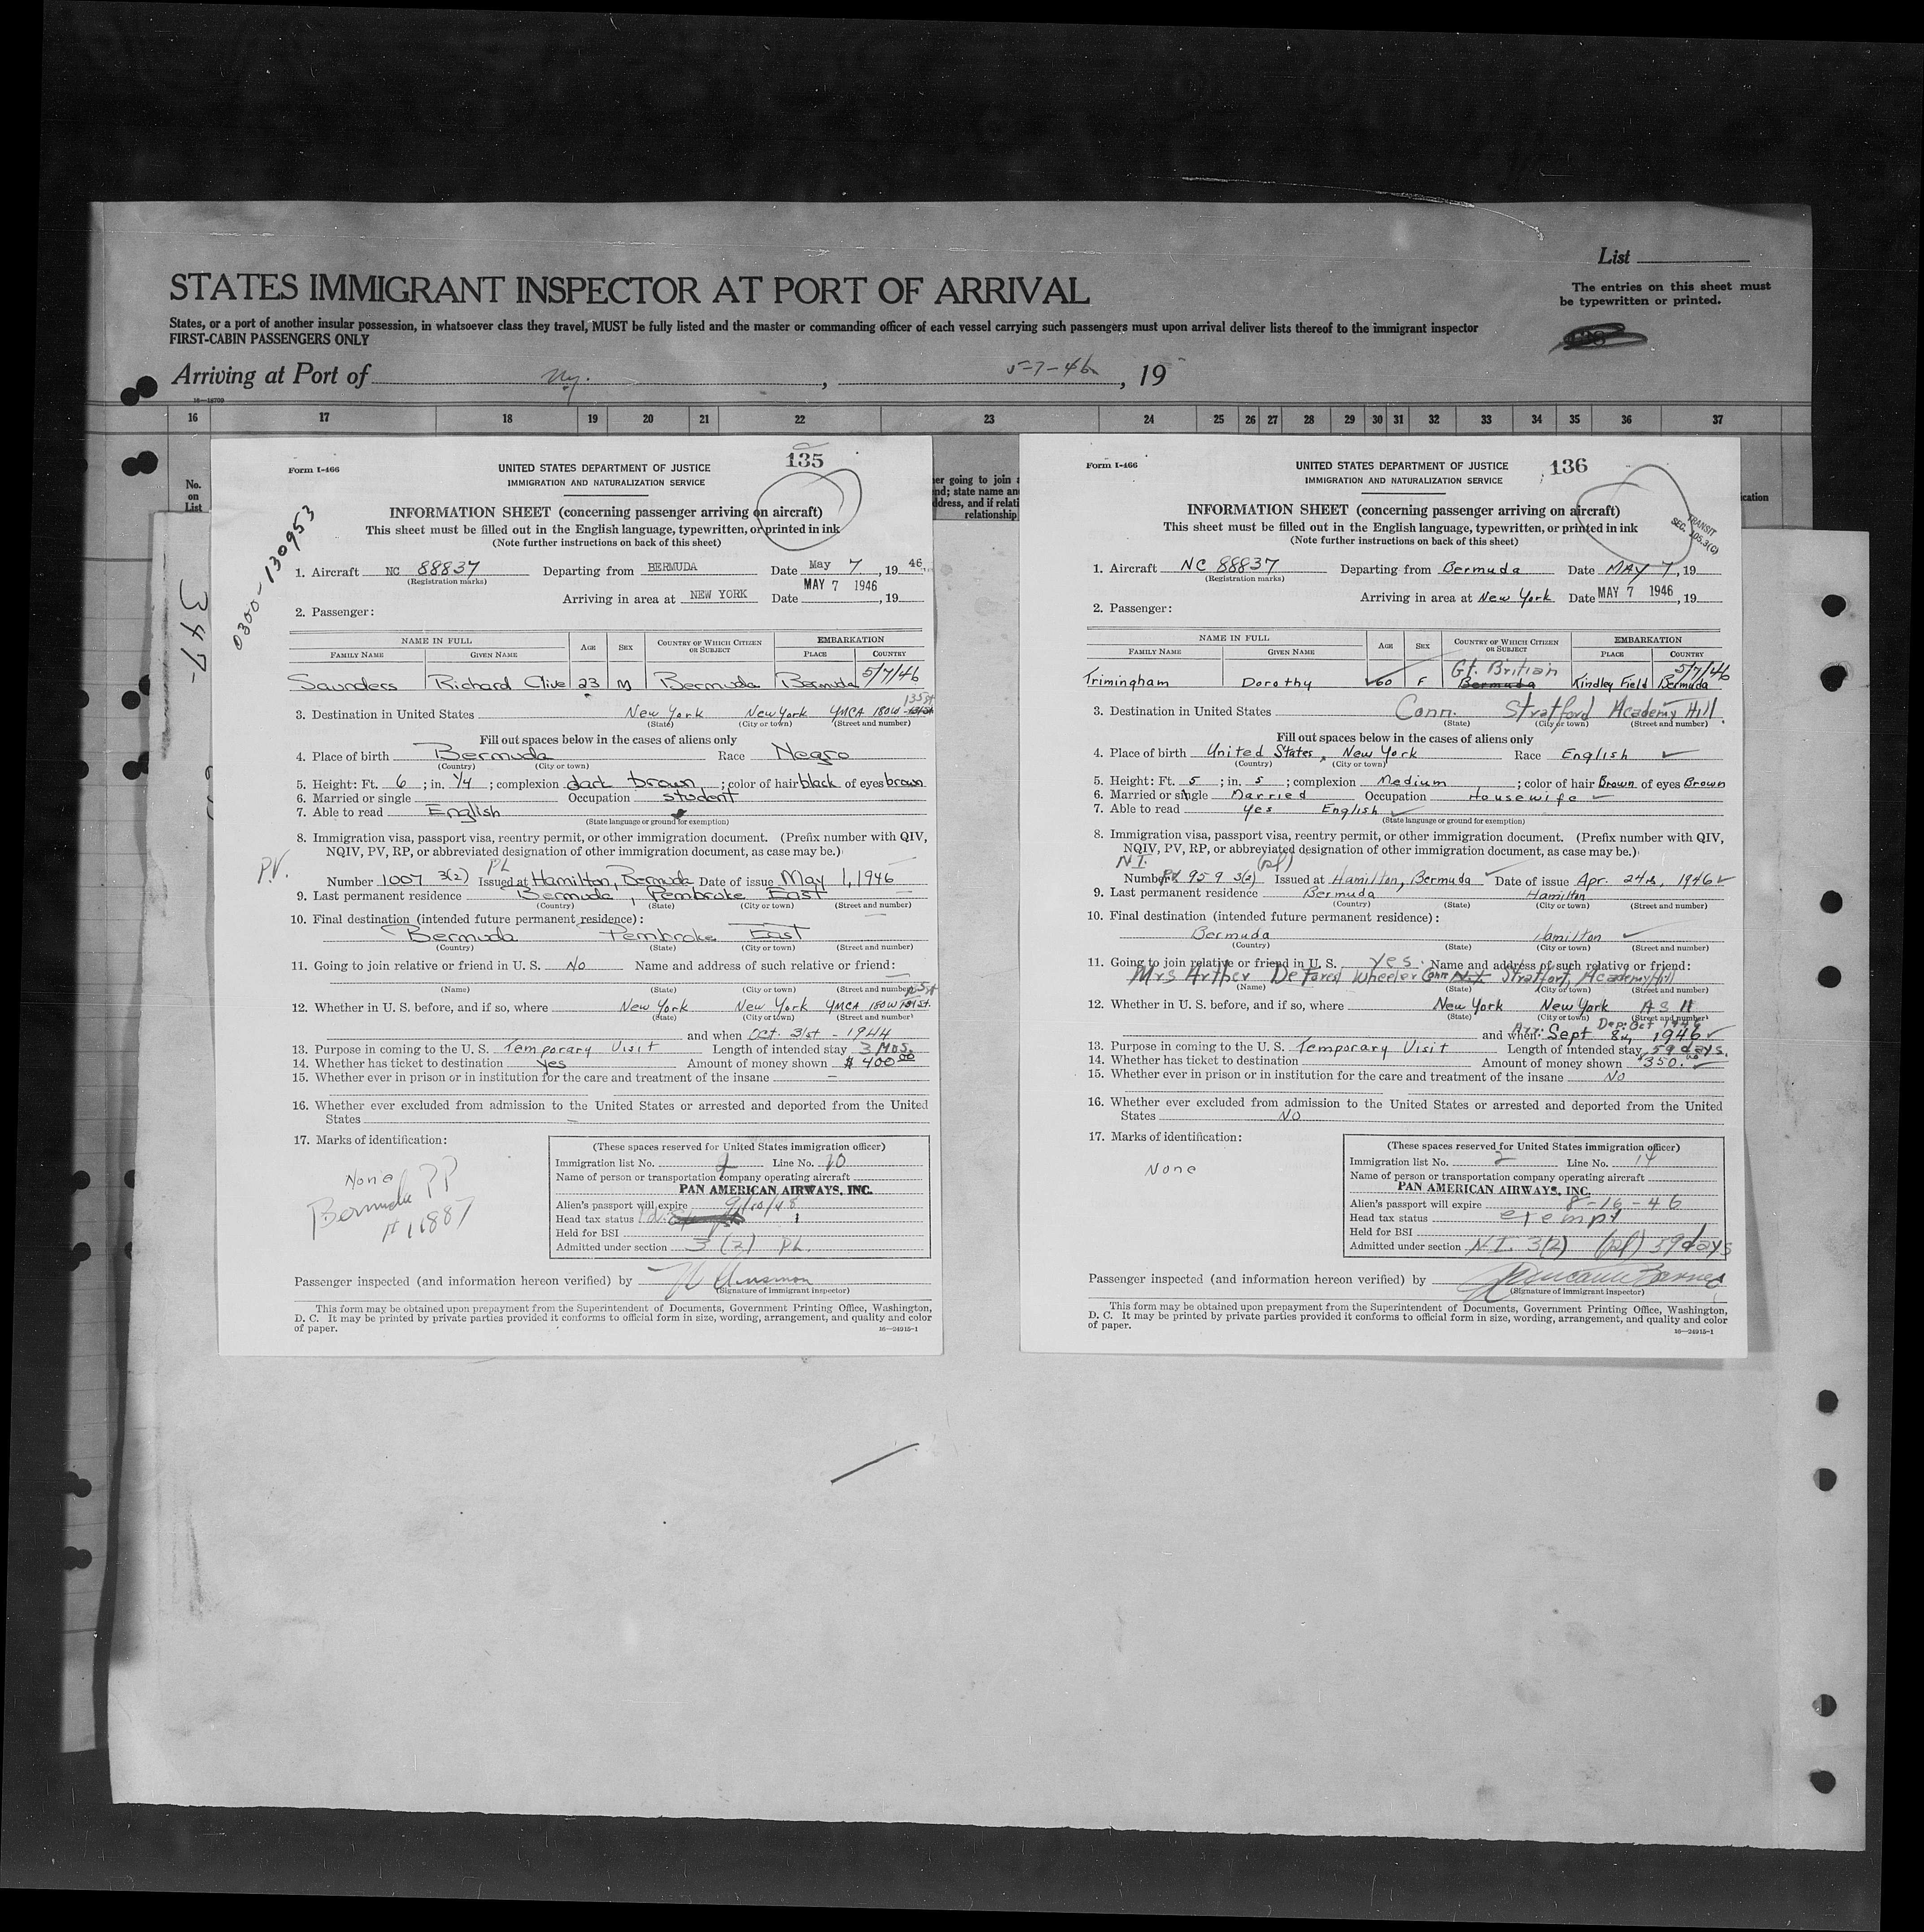 List
STATES IMMIGRANT INSPECTOR AT PORT OF ARRIVAL
The entries on this sheet must
be typewritten or printed.
States, or a port of another insular possession, in whatsoever class they travel, MUST be fully listed and the master or commanding officer of each vessel carrying such passengers must upon arrival deliver lists thereof to the immigrant inspector
FIRST-CABIN PASSENGERS ONLY
Arriving at Port of N.Y. , 5-7-46 , 19
16 17 18 19 20 21 22 23 24 25 26 27 28 29 30 31 32 33 34 35 36 37
No.
on
List
347-
0300-130953
135
Form I-466
UNITED STATES DEPARTMENT OF JUSTICE
IMMIGRATION AND NATURALIZATION SERVICE
INFORMATION SHEET (concerning passenger arriving on aircraft)
This sheet must be filled out in the English language, typewritten, or printed in ink
(Note further instructions on back of this sheet)
1. Aircraft NC 88837 Departing from BERMUDA Date May 7, 19 46
(Registration marks)
MAY 7 1946
Arriving in area at NEW YORK Date , 19
2. Passenger:
NAME IN FULL AGE SEX COUNTRY OF WHICH CITIZEN OR SUBJECT EMBARKATION
FAMILY NAME GIVEN NAME PLACE COUNTRY
5/7/46
Saunders Richard Clive 23 M Bermuda Bermuda
135 St
3. Destination in United States New York New York YMCA 180W
(State) (City or town) (Street and number)
Fill out spaces below in the cases of aliens only
4. Place of birth Bermuda Race Negro
(Country) (City or town)
5. Height: Ft. 6 ; in. 1/4 ; complexion dark brown ; color of hair black of eyes brown
6. Married or single Occupation student
7. Able to read English
(State language or ground for exemption)
8. Immigration visa, passport visa, reentry permit, or other immigration document. (Prefix number with QIV,
NQIV, PV, RP, or abbreviated designation of other immigration document, as case may be.)
P.V. PL
Number 1007 3(2) Issued at Hamilton, Bermuda Date of issue May 1, 1946
9. Last permanent residence Bermuda, Pembroke East
(Country) (State) (City or town) (Street and number)
10. Final destination (intended future permanent residence):
Bermuda Pembroke East
(Country) (State) (City or town) (Street and number)
11. Going to join relative or friend in U. S. No Name and address of such relative or friend:
(Name) (State) (City or town) (Street and number)
12. Whether in U. S. before, and if so, where New York New York YMCA 180W
(State) (City or town) (Street and number)
and when Oct. 31st - 1944
13. Purpose in coming to the U. S. Temporary Visit Length of intended stay 3 Mos.
14. Whether has ticket to destination yes Amount of money shown $ 400 00
15. Whether ever in prison or in institution for the care and treatment of the insane –
16. Whether ever excluded from admission to the United States or arrested and deported from the United
States –
17. Marks of identification:
None
Bermuda PP
# 11887
(These spaces reserved for United States immigration officer)
Immigration list No. 2 Line No. 10
Name of person or transportation company operating aircraft
PAN AMERICAN AIRWAYS, INC.
Alien's passport will expire 9/10/48
Head tax status
Held for BSI
Admitted under section 3 (2) PL.
Passenger inspected (and information hereon verified) by
(Signature of immigrant inspector)
This form may be obtained upon prepayment from the Superintendent of Documents, Government Printing Office, Washington,
D. C. It may be printed by private parties provided it conforms to official form in size, wording, arrangement, and quality and color
of paper.
16—24915-1
er going to join a
nd; state name an
ddress, and if relati
relationship
ication
136
Form I-466
UNITED STATES DEPARTMENT OF JUSTICE
IMMIGRATION AND NATURALIZATION SERVICE
INFORMATION SHEET (concerning passenger arriving on aircraft)
This sheet must be filled out in the English language, typewritten, or printed in ink
(Note further instructions on back of this sheet)
TRANSIT
SEC. 105.3(C)
1. Aircraft NC 88837 Departing from Bermuda Date MAY 7, 19
(Registration marks)
MAY 7 1946
Arriving in area at New York Date , 19
2. Passenger:
NAME IN FULL AGE SEX COUNTRY OF WHICH CITIZEN OR SUBJECT EMBARKATION
FAMILY NAME GIVEN NAME PLACE COUNTRY
Gt. Britian 5/7/46
Trimingham Dorothy 60 F Bermuda Kindley Field Bermuda
3. Destination in United States Conn. Stratford Academy Hill.
(State) (City or town) (Street and number)
Fill out spaces below in the cases of aliens only
4. Place of birth United States, New York Race English
(Country) (City or town)
5. Height: Ft. 5 ; in. 5 ; complexion Medium ; color of hair Brown of eyes Brown
6. Married or single Married Occupation Housewife
7. Able to read Yes English
(State language or ground for exemption)
8. Immigration visa, passport visa, reentry permit, or other immigration document. (Prefix number with QIV,
NQIV, PV, RP, or abbreviated designation of other immigration document, as case may be.)
N.I. (pl)
Number 959 3(2) Issued at Hamilton, Bermuda Date of issue Apr. 24th, 1946
9. Last permanent residence Bermuda Hamilton
(Country) (State) (City or town) (Street and number)
10. Final destination (intended future permanent residence):
Bermuda Hamilton
(Country) (State) (City or town) (Street and number)
11. Going to join relative or friend in U. S. Yes Name and address of such relative or friend:
Mrs Arther De Forest Wheeler Conn N.Y. Stratfort, Academy Hill
(Name) (State) (City or town) (Street and number)
12. Whether in U. S. before, and if so, where New York New York
(State) (City or town) (Street and number)
and when Arr: Sept 8th, 1946
13. Purpose in coming to the U. S. Temporary Visit Length of intended stay 59 days.
14. Whether has ticket to destination Amount of money shown $350.00
15. Whether ever in prison or in institution for the care and treatment of the insane No
16. Whether ever excluded from admission to the United States or arrested and deported from the United
States No
17. Marks of identification:
None
(These spaces reserved for United States immigration officer)
Immigration list No. 2 Line No. 14
Name of person or transportation company operating aircraft
PAN AMERICAN AIRWAYS, INC.
Alien's passport will expire 8-16-46
Head tax status exempt
Held for BSI
Admitted under section N.I. 3(2) (pl) 59 days
Passenger inspected (and information hereon verified) by
(Signature of immigrant inspector)
This form may be obtained upon prepayment from the Superintendent of Documents, Government Printing Office, Washington,
D. C. It may be printed by private parties provided it conforms to official form in size, wording, arrangement, and quality and color
of paper.
16—24915-1